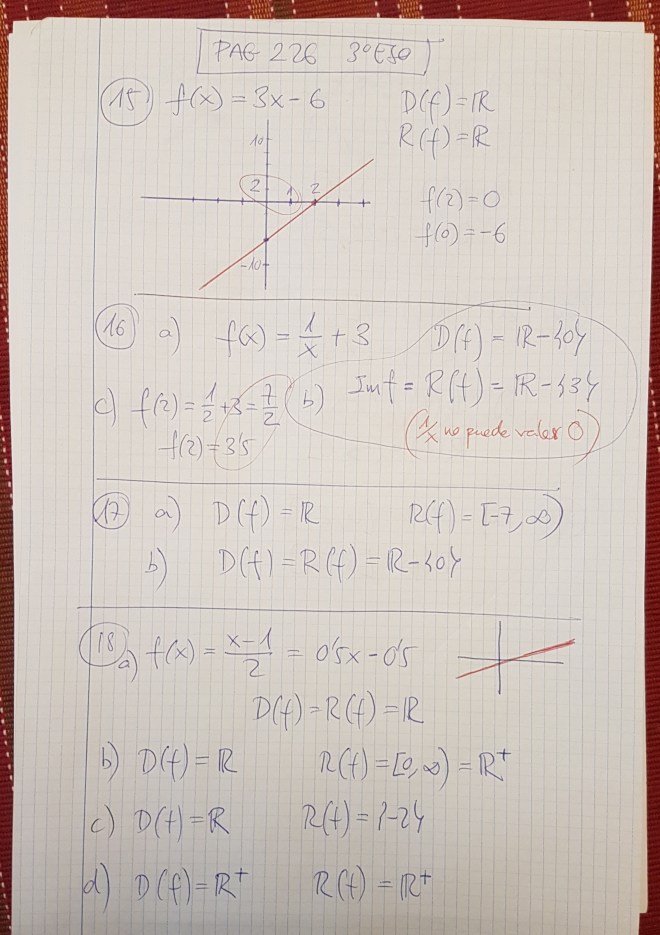 PAG 226 3º ESO
15) f(x) = 3x - 6 D(f) = ℝ
R(f) = ℝ
10
2 1 2
-10
f(2) = 0
f(0) = -6
16 a) f(x) = 1/x + 3 D(f) = ℝ - {0}
b) Im f = R(f) = ℝ - {3}
(1/x no puede valer 0)
c) f(2) = 1/2 + 3 = 7/2
f(2) = 3'5
17 a) D(f) = ℝ R(f) = [-7, ∞)
b) D(f) = R(f) = ℝ - {0}
18 a) f(x) = (x-1)/2 = 0'5x - 0'5
D(f) = R(f) = ℝ
b) D(f) = ℝ R(f) = [0, ∞) = ℝ⁺
c) D(f) = ℝ R(f) = {-2}
d) D(f) = ℝ⁺ R(f) = ℝ⁺